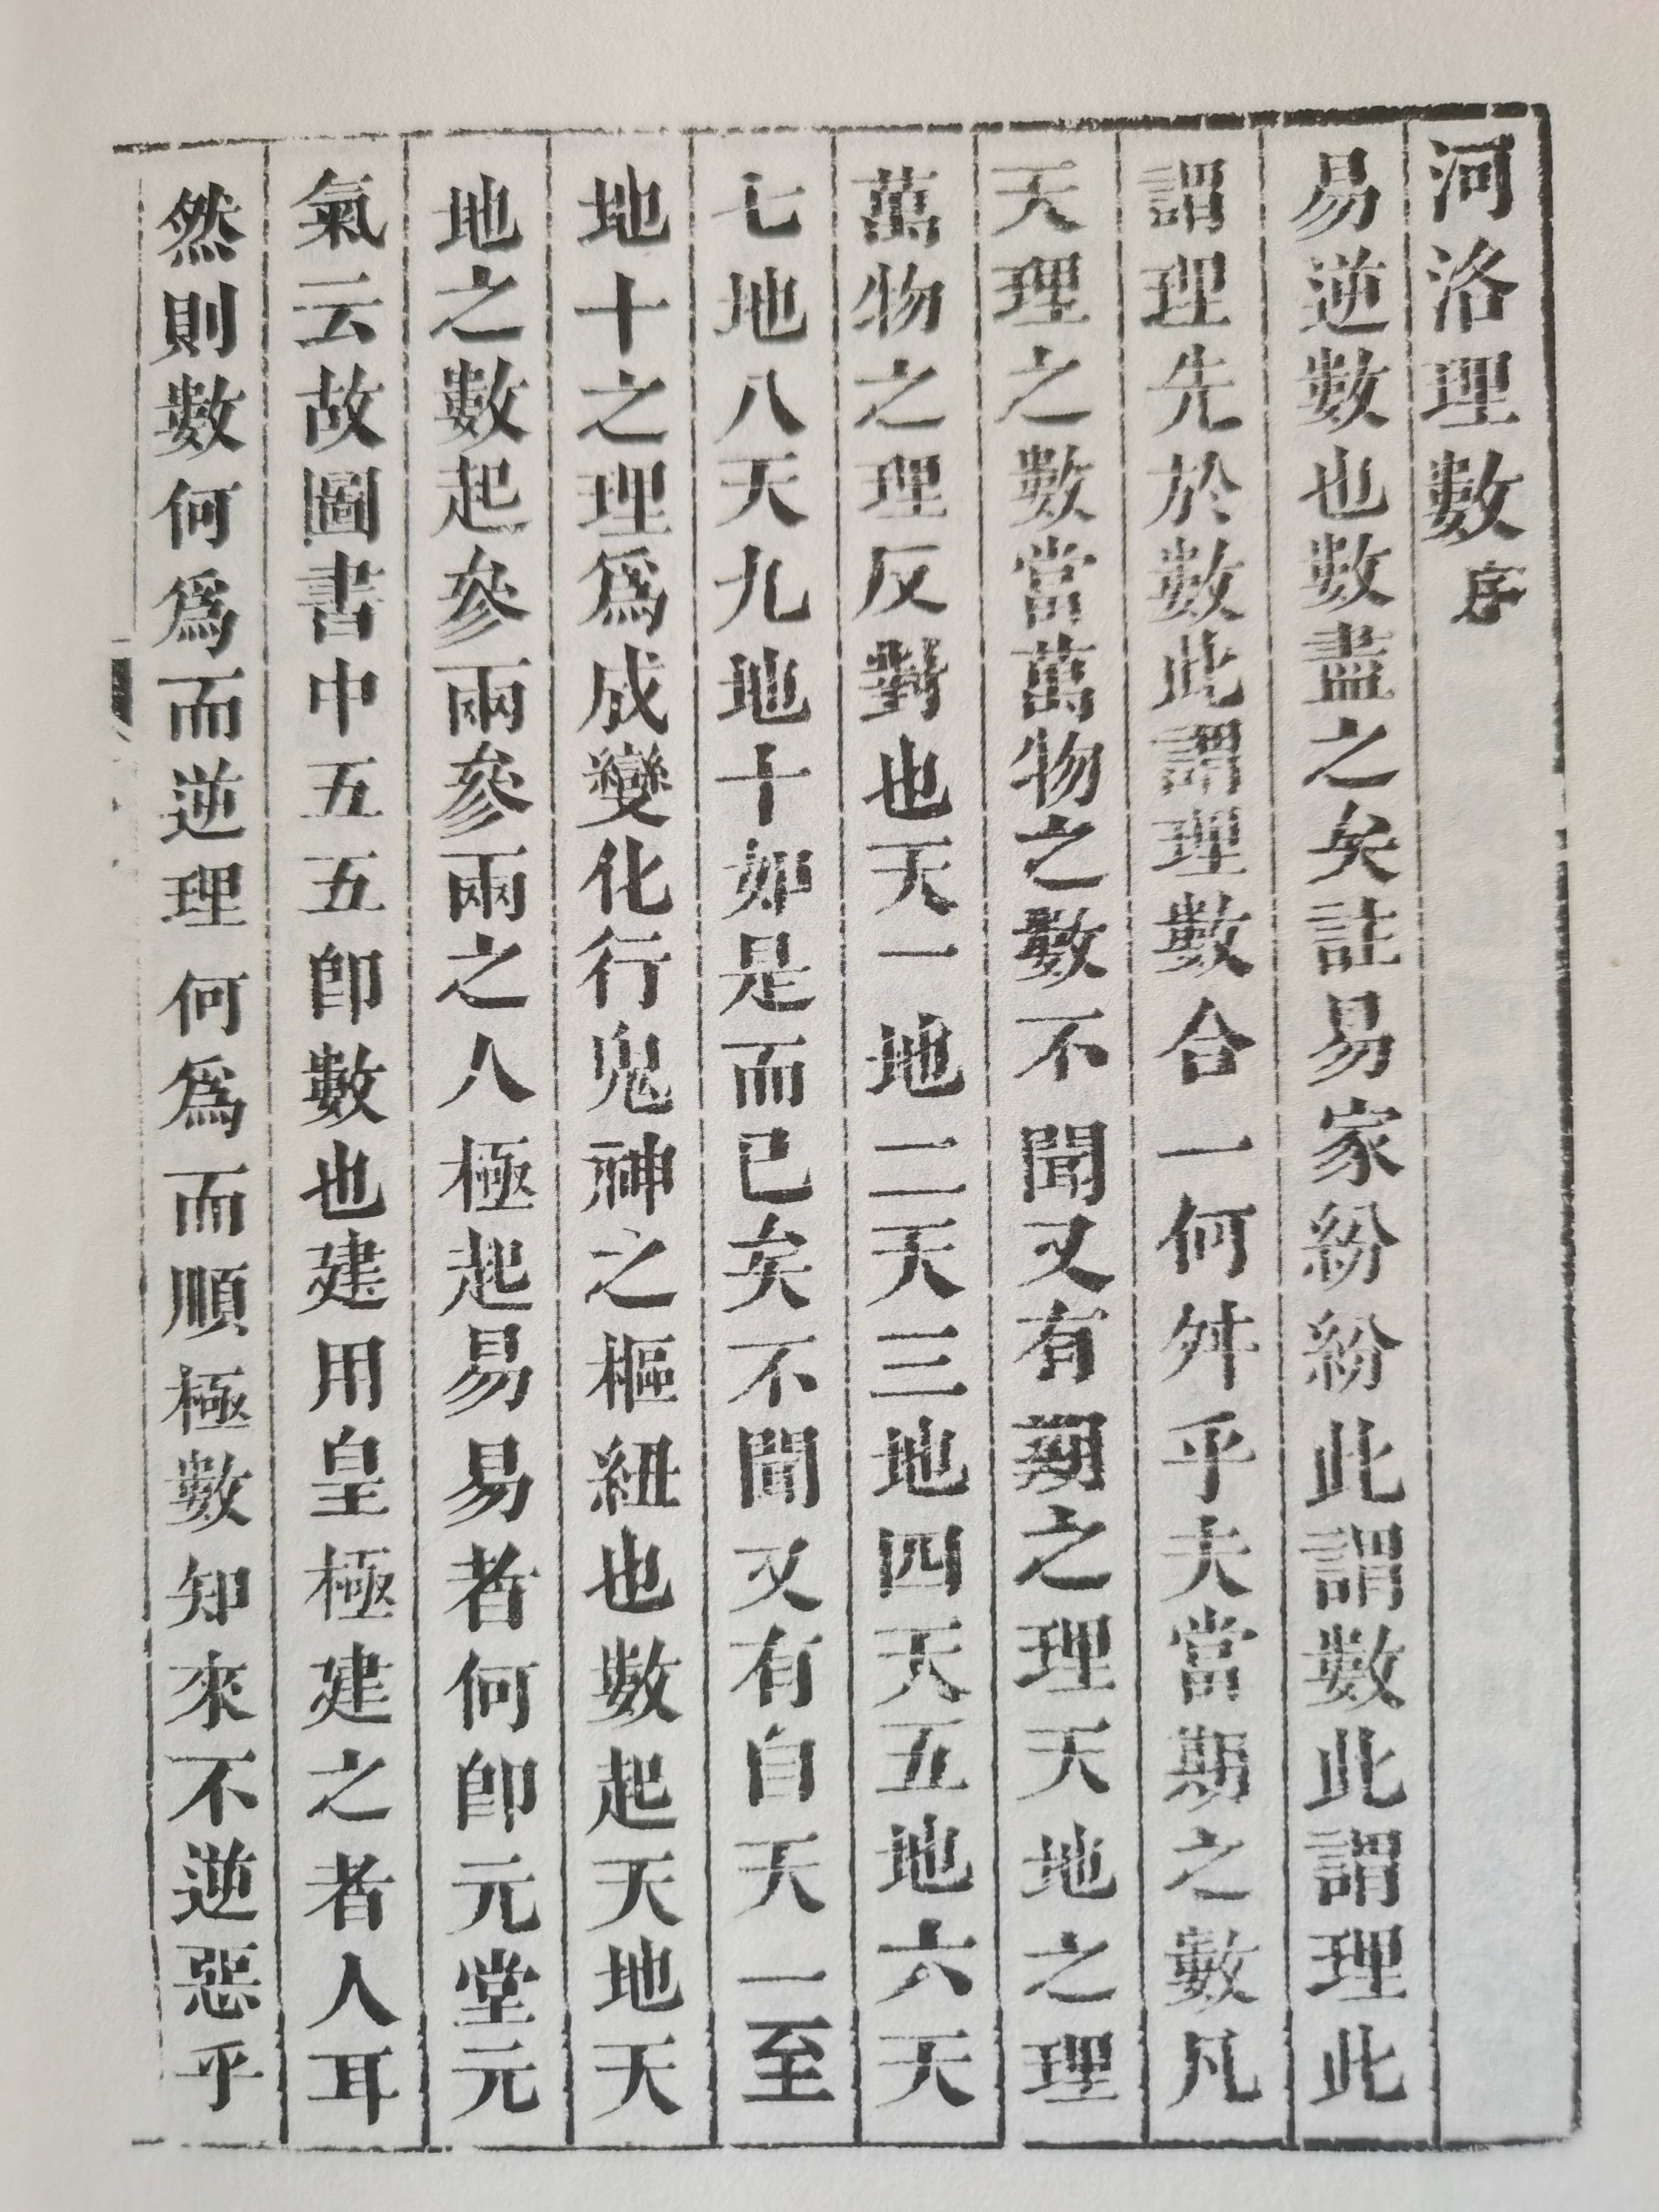 河洛理數序
易逆數也數盡之矣註易家紛紛此謂數此謂理此
謂理先於數此謂理數合一何舛乎夫當期之數凡
天理之數當萬物之數不聞又有期之理天地之理
萬物之理反對也天一地二天三地四天五地六天
七地八天九地十如是而已矣不聞又有自天一至
地十之理爲成變化行鬼神之樞紐也數起天地天
地之數起參兩參兩之人極起易易者何卽元堂元
氣云故圖書中五五卽數也建用皇極建之者人耳
然則數何爲而逆理何爲而順極數知來不逆惡乎